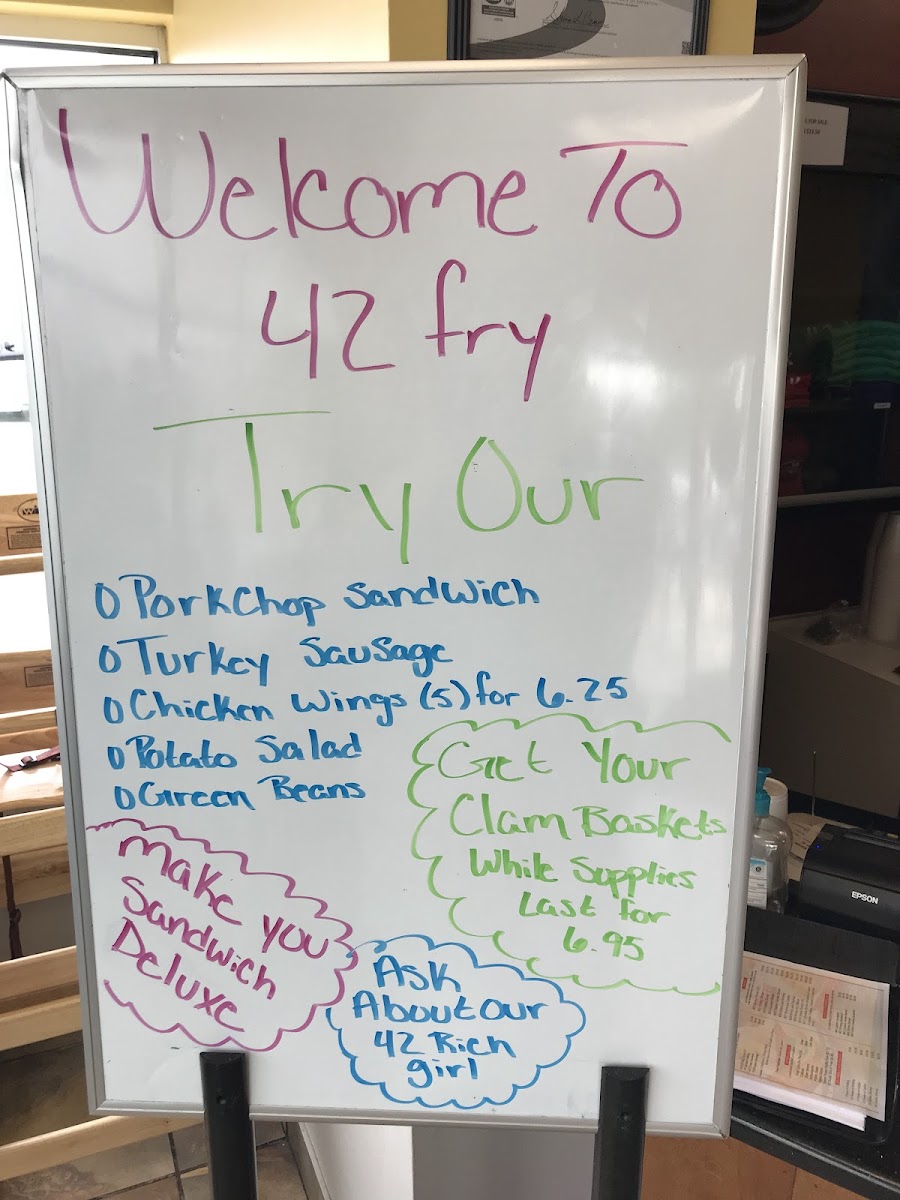 Welcome To
42 fry
Try Our
0 PorkChop Sandwich
0 Turkey Sausage
0 Chicken Wings (5) for 6.25
0 Potato Salad
0 Green Beans
Get Your
Clam Baskets
While Supplies
Last for
6.95
Make you
Sandwich
Deluxe
Ask
About our
42 Rich
girl
EPSON